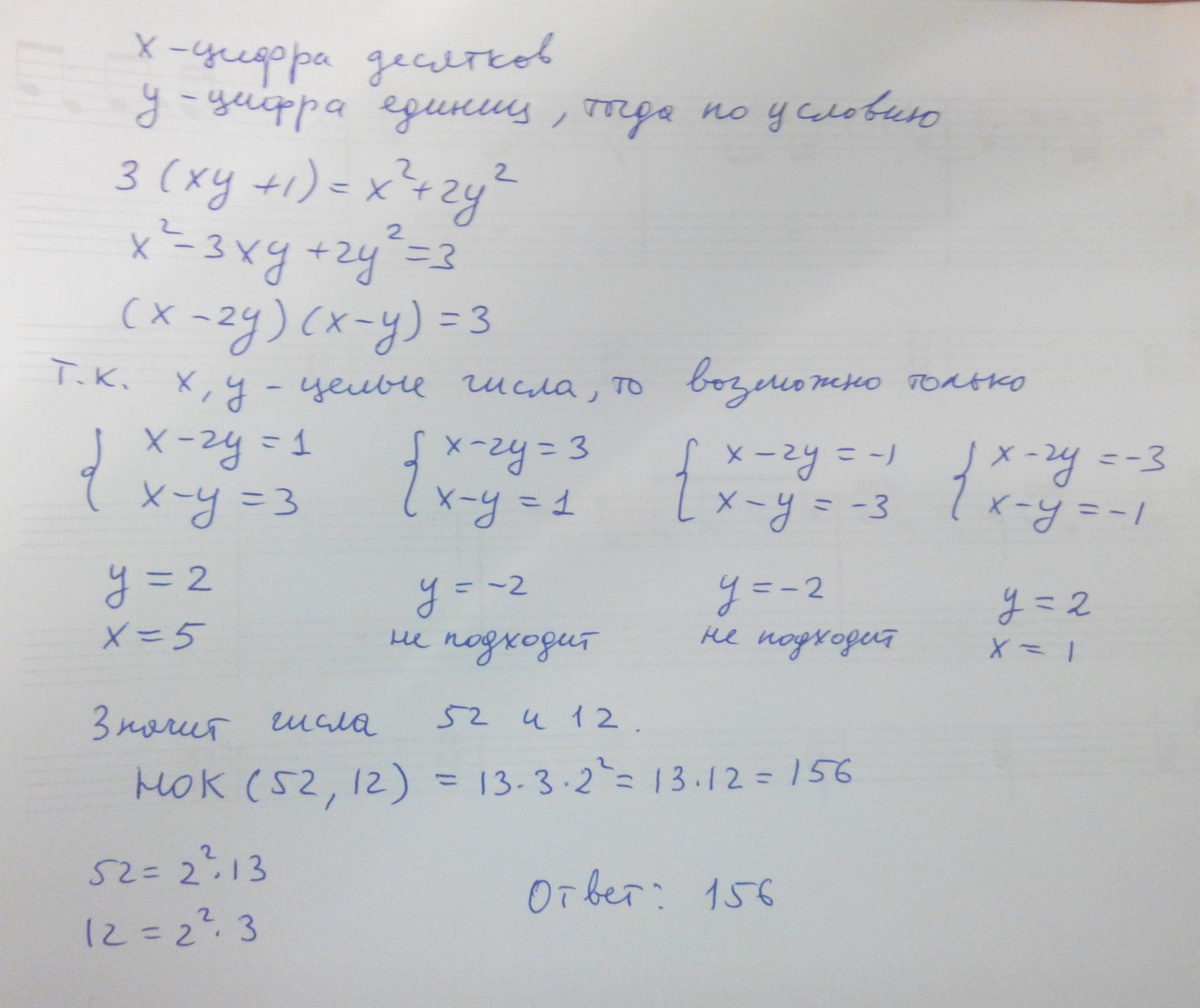 x - цифра десятков
y - цифра единиц, тогда по условию
3 (xy + 1) = x² + 2y²
x² - 3xy + 2y² = 3
(x - 2y) (x - y) = 3
Т.к. x, y - целые числа, то возможно только
{ x - 2y = 1 { x - 2y = 3 { x - 2y = -1 { x - 2y = -3
x - y = 3 x - y = 1 x - y = -3 x - y = -1
y = 2 y = -2 y = -2 y = 2
x = 5 не подходит не подходит x = 1
Значит числа 52 и 12.
НОК (52, 12) = 13·3·2² = 13·12 = 156
52 = 2²·13
12 = 2²·3
Ответ: 156